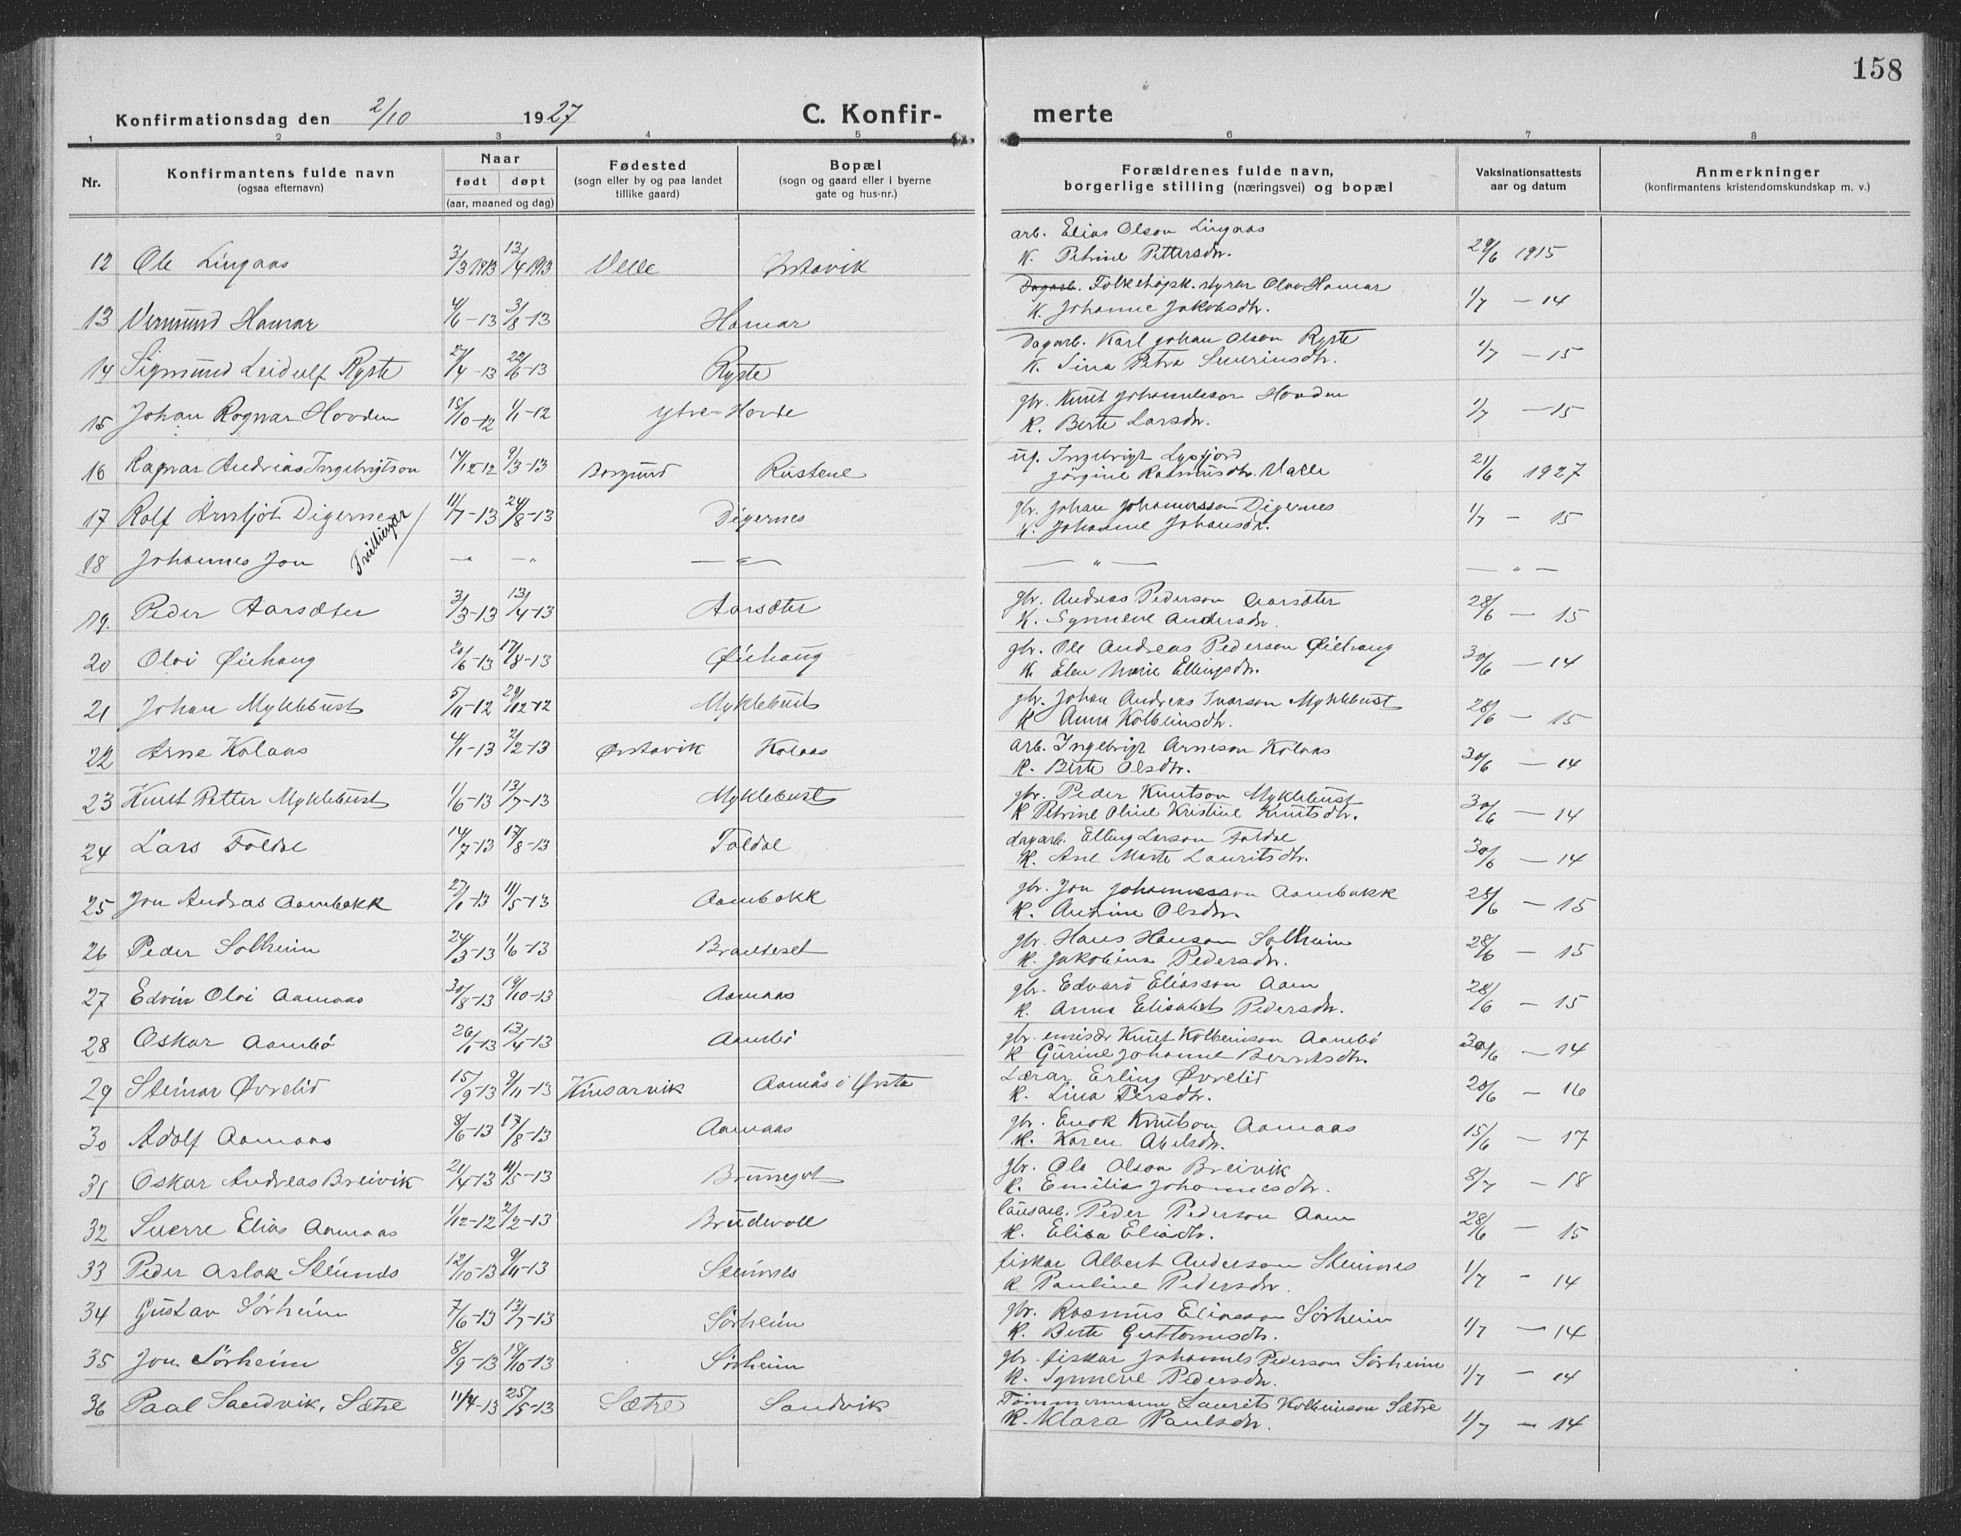 158
Konfirmationsdag den 2/10 1927 C. Konfir- merte
1 2 3 4 5 6 7 8
Nr. Konfirmantens fulde navn (ogsaa efternavn) Naar født døpt (aar, maaned og dag) Fødested (sogn eller by og paa landet tillike gaard) Bopæl (sogn og gaard eller i byerne gate og hus-nr.) Forældrenes fulde navn, borgerlige stilling (næringsvei) og bopæl Vaksinationsattests aar og datum Anmerkninger (konfirmantens kristendomskundskap m. v.)
12 Ole Lingaas 3/3 1913 13/4 1913 Velle Ørstavik arb. Elias Olson Lingaas
K. Petrine Pettersdtr. 29/6 1915
13 Vermund Hamar 4/6-13 3/8-13 Hamar Dagarb. Folkehøjsk. styrar Olav Hamar
K. Johanne Jakobsdtr. 1/7 - 14
14 Sigmund Leidulf Ryste 27/4-13 22/6-13 Ryste Dagarb. Karl Johan Olson Ryste
K. Sina Petra Severinsdtr. 1/7 - 15
15 Johan Ragnar Hovden 15/10-12 1/11-12 ytre-Hovde gbr. Knut Johanneson Hovden
K. Berte Larsdtr. 1/7 - 15
16 Ragnar Andreas Ingebrigtson 14/12-12 9/3-13 Borgund Rustene ug. Ingebrigt Lysfjord
Jørgine Rasmusdtr. Valle 21/6 1927
17 Rolf Arnljot Digernes 11/7-13 24/8-13 Digernes gbr. Johan Johannesson Digernes
K. Johanne Johansdtr. 1/7 - 15
Tvillingar
18 Johannes Jon -"- -"- -"- -"- -"-
19. Peder Aarsæter 3/3-13 13/4-13 Aarsæter gbr. Andreas Pederson Aarsæter
K. Synneve Andersdtr. 28/6 - 15
20 Olai Øiehaug 20/6-13 17/8-13 Øiehaug gbr. Ole Andreas Pederson Øiehaug
K. Elen Marie Ellingsdtr. 30/6 - 14
21 Johan Myklebust 5/11-12 29/12-12 Myklebust gbr. Johan Andreas Ivarson Myklebust
K Anna Kolbeinsdtr. 28/6 - 15
22 Arne Kolaas 4/1-13 2/2-13 Ørstavik Kolaas arb. Ingebrigt Arneson Kolaas
K. Berte Olsdtr. 30/6 - 14
23 Knut Petter Myklebust 1/6-13 13/7-13 Myklebust gbr. Peder Knutson Myklebust
K Petrine Oline Kristine Knutsdtr. 30/6 - 14
24 Lars Foldal 14/7-13 17/8-13 Foldal dagarb. Elling Larson Foldal
K. Ane Marte Lauritsdtr. 30/6 - 14
25 Jon Andreas Aambakk 27/1-13 11/5-13 Aambakk gbr. Jon Johannesson Aambakk
K. Andrine Olsdtr. 28/6 - 15
26 Peder Solheim 24/3-13 1/6-13 Brauteset gbr. Hans Hanson Solheim
K. Jakobine Pedersdtr. 28/6 - 15
27 Edvin Olai Aamaas 30/8-13 19/10-13 Aamaas gbr. Edvard Eliasson Aam
K. Anna Elisabet Pedersdtr. 28/6 - 15
28 Oskar Aambø 26/1-13 13/4-13 Aambø gbr. Knut Kolbeinson Aambø
K Gurine Johanne Berntsdtr. 30/6 - 14
29 Steinar Øvrelid 15/9-13 9/11-13 Kinsarvik Aamås i Ørsta Lærar Erling Øvrelid
K. Lina Persdtr. 20/6 - 16
30 Adolf Aamaas 8/6-13 17/8-13 Aamaas gbr. Enok Knutson Aamaas
K. Karen Abelsdtr. 15/6 - 17
31 Oskar Andreas Breivik 21/4-13 4/5-13 Brungot gbr. Ole Olson Breivik
K. Emilie Johannesdtr. 8/7 - 18
32 Sverre Elias Aamaas 1/12-12 2/2-13 Brudevoll lausarb. Peder Pederson Aam
K. Elisa Eliasdtr. 28/6 - 15
33 Peder Aslak Steinnes 12/10-13 9/11-13 Steinnes fiskar Albert Anderson Steinnes
K Pauline Pedersdtr. 1/7 - 14
34 Gustav Sørheim 7/6-13 13/7-13 Sørheim gbr. Rasmus Eliasson Sørheim
K. Berte Guttormsdtr. 1/7 - 14
35 Jon. Sørheim 8/9-13 19/10-13 Sørheim gbr. fiskar Johannes Pederson Sørheim
K. Synneve Pedersdtr. 1/7 - 14
36 Paal Sandvik, Sætre 11/4-13 25/5-13 Sætre Sandvik Tømmermann Laurits Kolbeinson Sætre
K. Klara Paulsdtr. 1/7 - 14